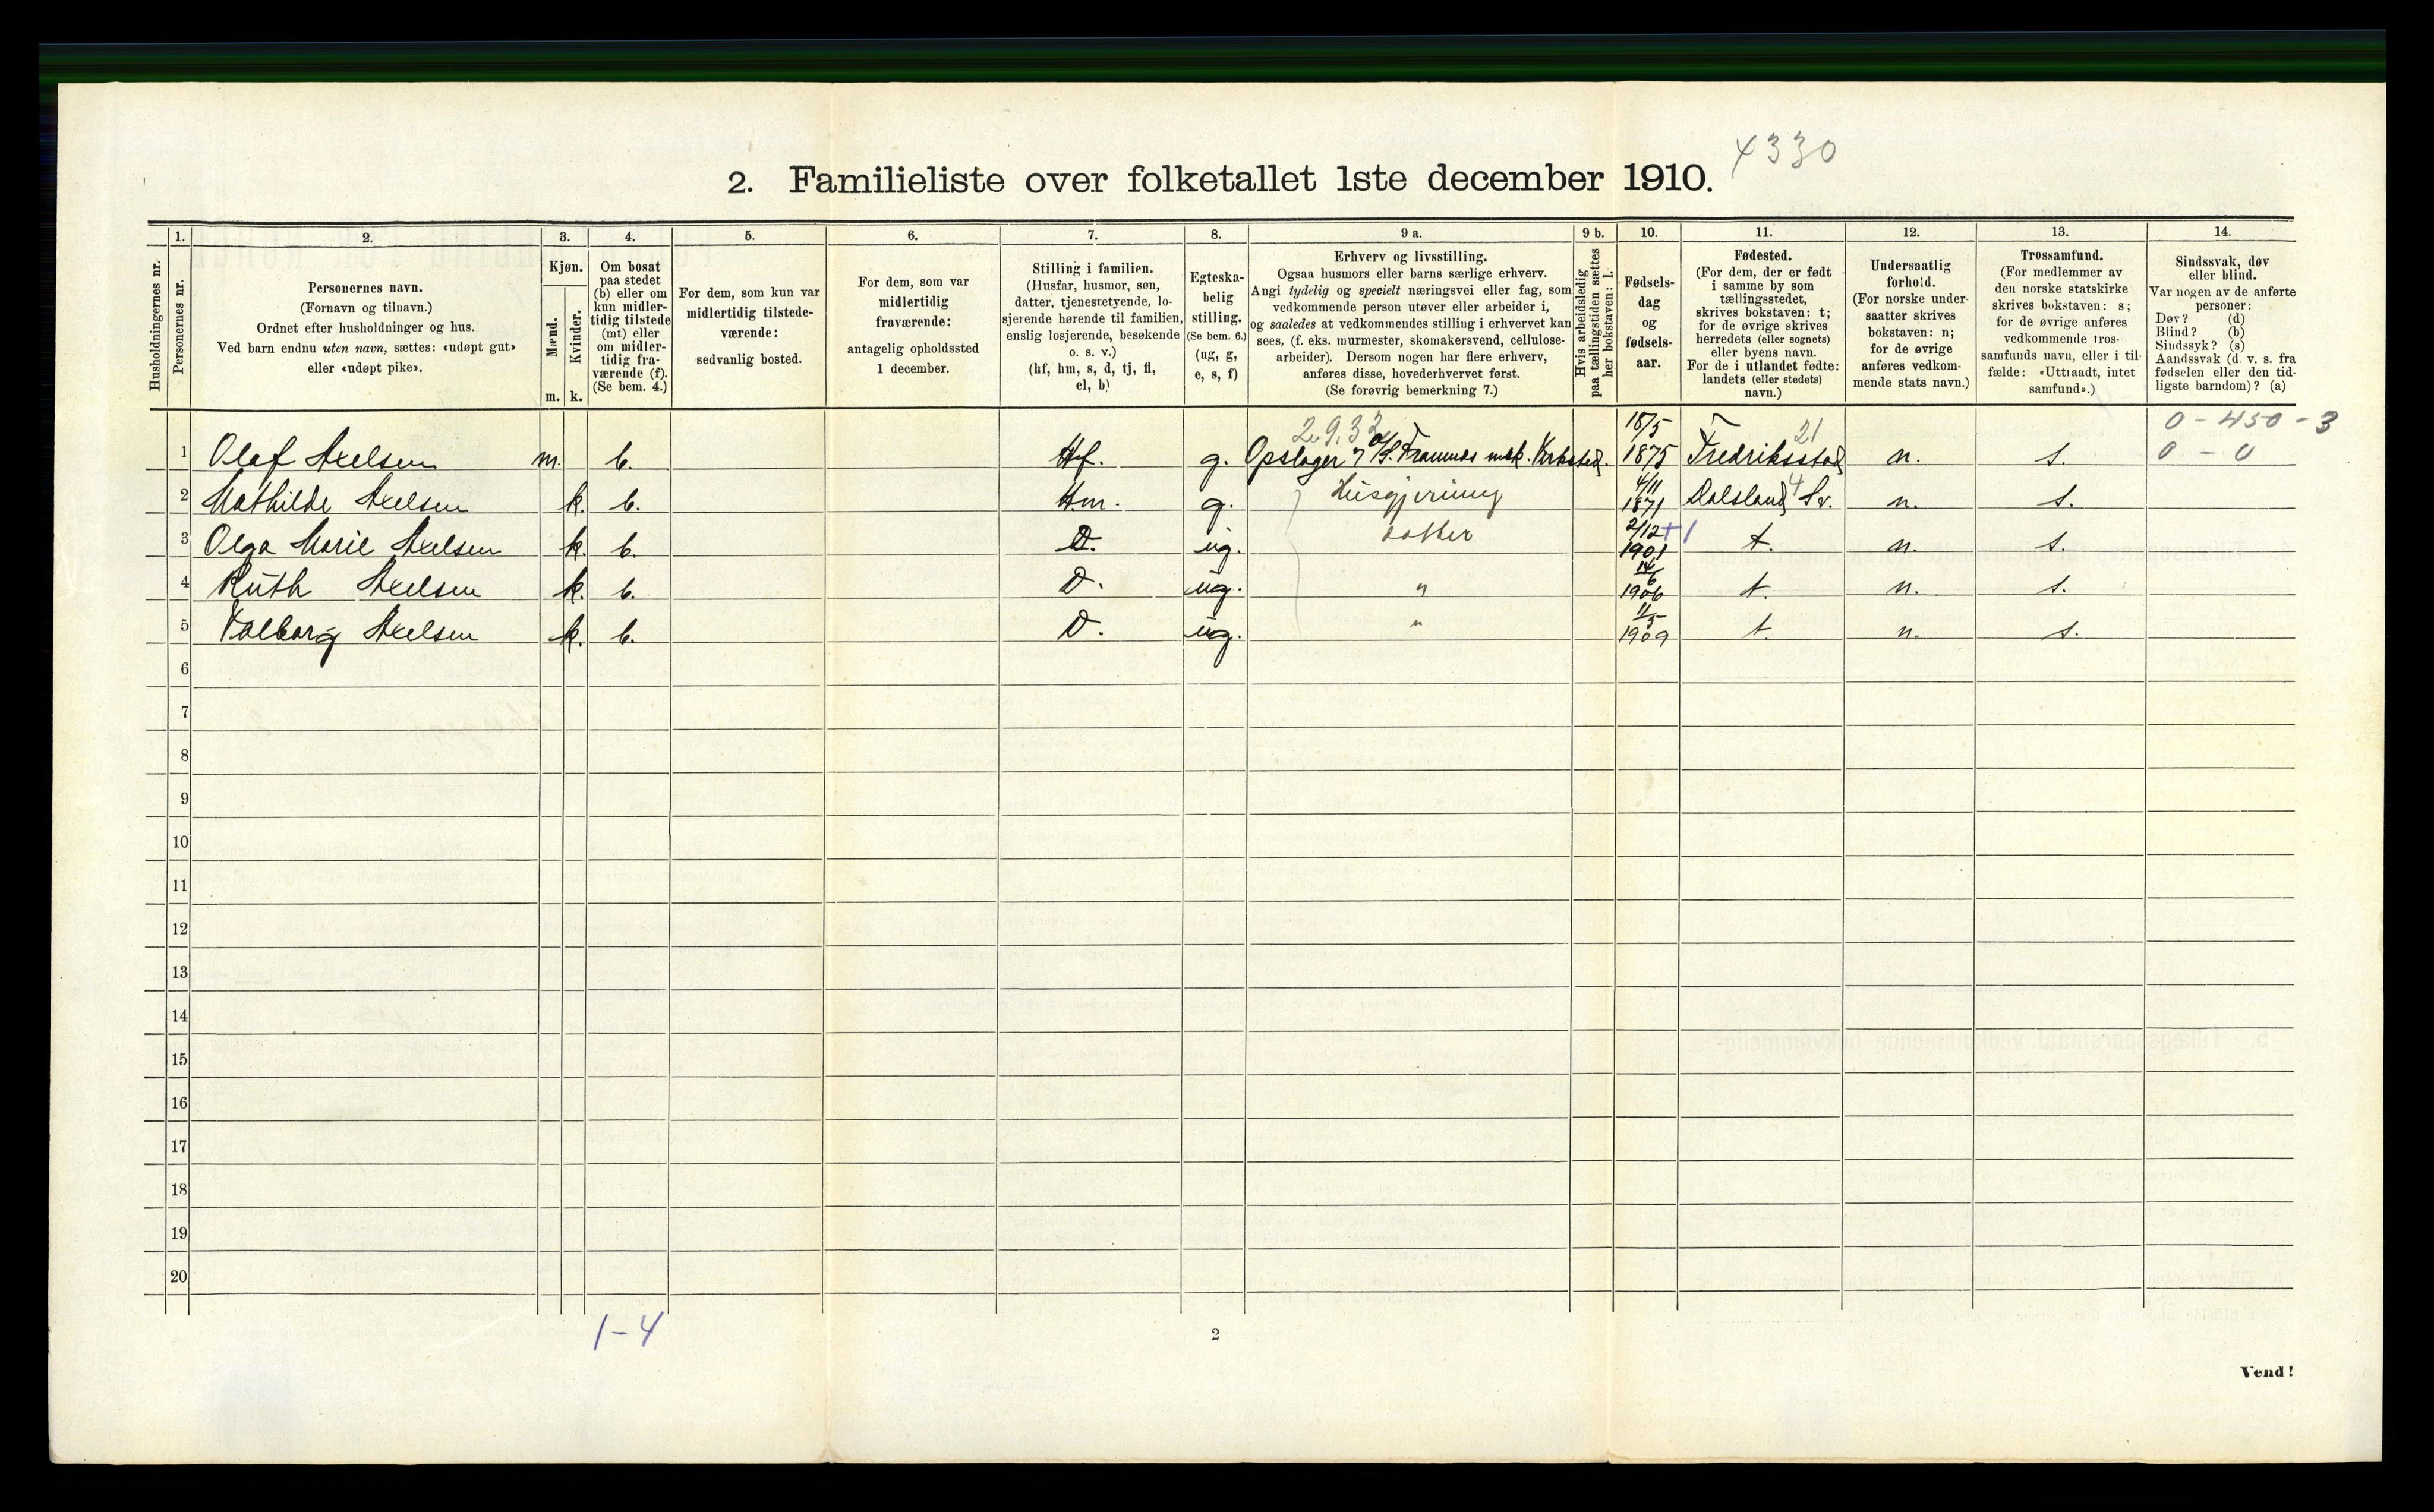 4330
2. Familieliste over folketallet 1ste december 1910.
Husholdningernes nr.
1.
Personernes nr.
2.
Personernes navn.
(Fornavn og tilnavn.)
Ordnet efter husholdninger og hus.
Ved barn endnu uten navn, sættes: «udøpt gut»
eller «udøpt pike».
3.
Kjøn.
Mænd.
m.
Kvinder.
k.
4.
Om bosat
paa stedet
(b) eller om
kun midler-
tidig tilstede
(mt) eller
om midler-
tidig fra-
værende (f).
(Se bem. 4.)
5.
For dem, som kun var
midlertidig tilstede-
værende:
sedvanlig bosted.
6.
For dem, som var
midlertidig
fraværende:
antagelig opholdssted
1 december.
7.
Stilling i familien.
(Husfar, husmor, søn,
datter, tjenestetyende, lo-
sjerende hørende til familien,
enslig losjerende, besøkende
o. s. v.)
(hf, hm, s, d, tj, fl,
el, b)
8.
Egteska-
belig
stilling.
(Se bem. 6.)
(ug, g,
e, s, f)
9 a.
Erhverv og livsstilling.
Ogsaa husmors eller barns særlige erhverv.
Angi tydelig og specielt næringsvei eller fag, som
vedkommende person utøver eller arbeider i,
og saaledes at vedkommendes stilling i erhvervet kan
sees, (f. eks. murmester, skomakersvend, cellulose-
arbeider). Dersom nogen har flere erhverv,
anføres disse, hovederhvervet først.
(Se forøvrig bemerkning 7.)
9 b.
Hvis arbeidsledig
paa tællingstiden sættes
her bokstaven: l.
10.
Fødsels-
dag
og
fødsels-
aar.
11.
Fødested.
(For dem, der er født
i samme by som
tællingsstedet,
skrives bokstaven: t;
for de øvrige skrives
herredets (eller sognets)
eller byens navn.
For de i utlandet fødte:
landets (eller stedets)
navn.)
12.
Undersaatlig
forhold.
(For norske under-
saatter skrives
bokstaven: n;
for de øvrige
anføres vedkom-
mende stats navn.)
13.
Trossamfund.
(For medlemmer av
den norske statskirke
skrives bokstaven: s;
for de øvrige anføres
vedkommende tros-
samfunds navn, eller i til-
fælde: «Uttraadt, intet
samfund».)
14.
Sindssvak, døv
eller blind.
Var nogen av de anførte
personer:
Døv? (d)
Blind? (b)
Sindssyk? (s)
Aandssvak (d. v. s. fra
fødselen eller den tid-
ligste barndom)? (a)
2.9.32 18/5 21 0 - 450 - 3
1 Olaf Axelsen m. b. Hf. g. Opslager A/S. Framnæs mek. Verksted. 1875 Fredriksstad n. s. 0 - 0
2 Mathilde Axelsen k. b. Hm. g. Husgjerning 4/11 1871 Dalsland 4 Sv. n. s.
3 Olga Marie Axelsen k. b. D. ug. datter 2/12 + 1 1901 t. n. s.
4 Ruth Axelsen k. b. D. ug. " 14/6 1906 t. n. s.
5 Valborg Axelsen k. b. D. ug. " 11/5 1909 t. n. s.
6
7
8
9
10
11
12
13
14
15
16
17
18
19
20
1-4
2
Vend!